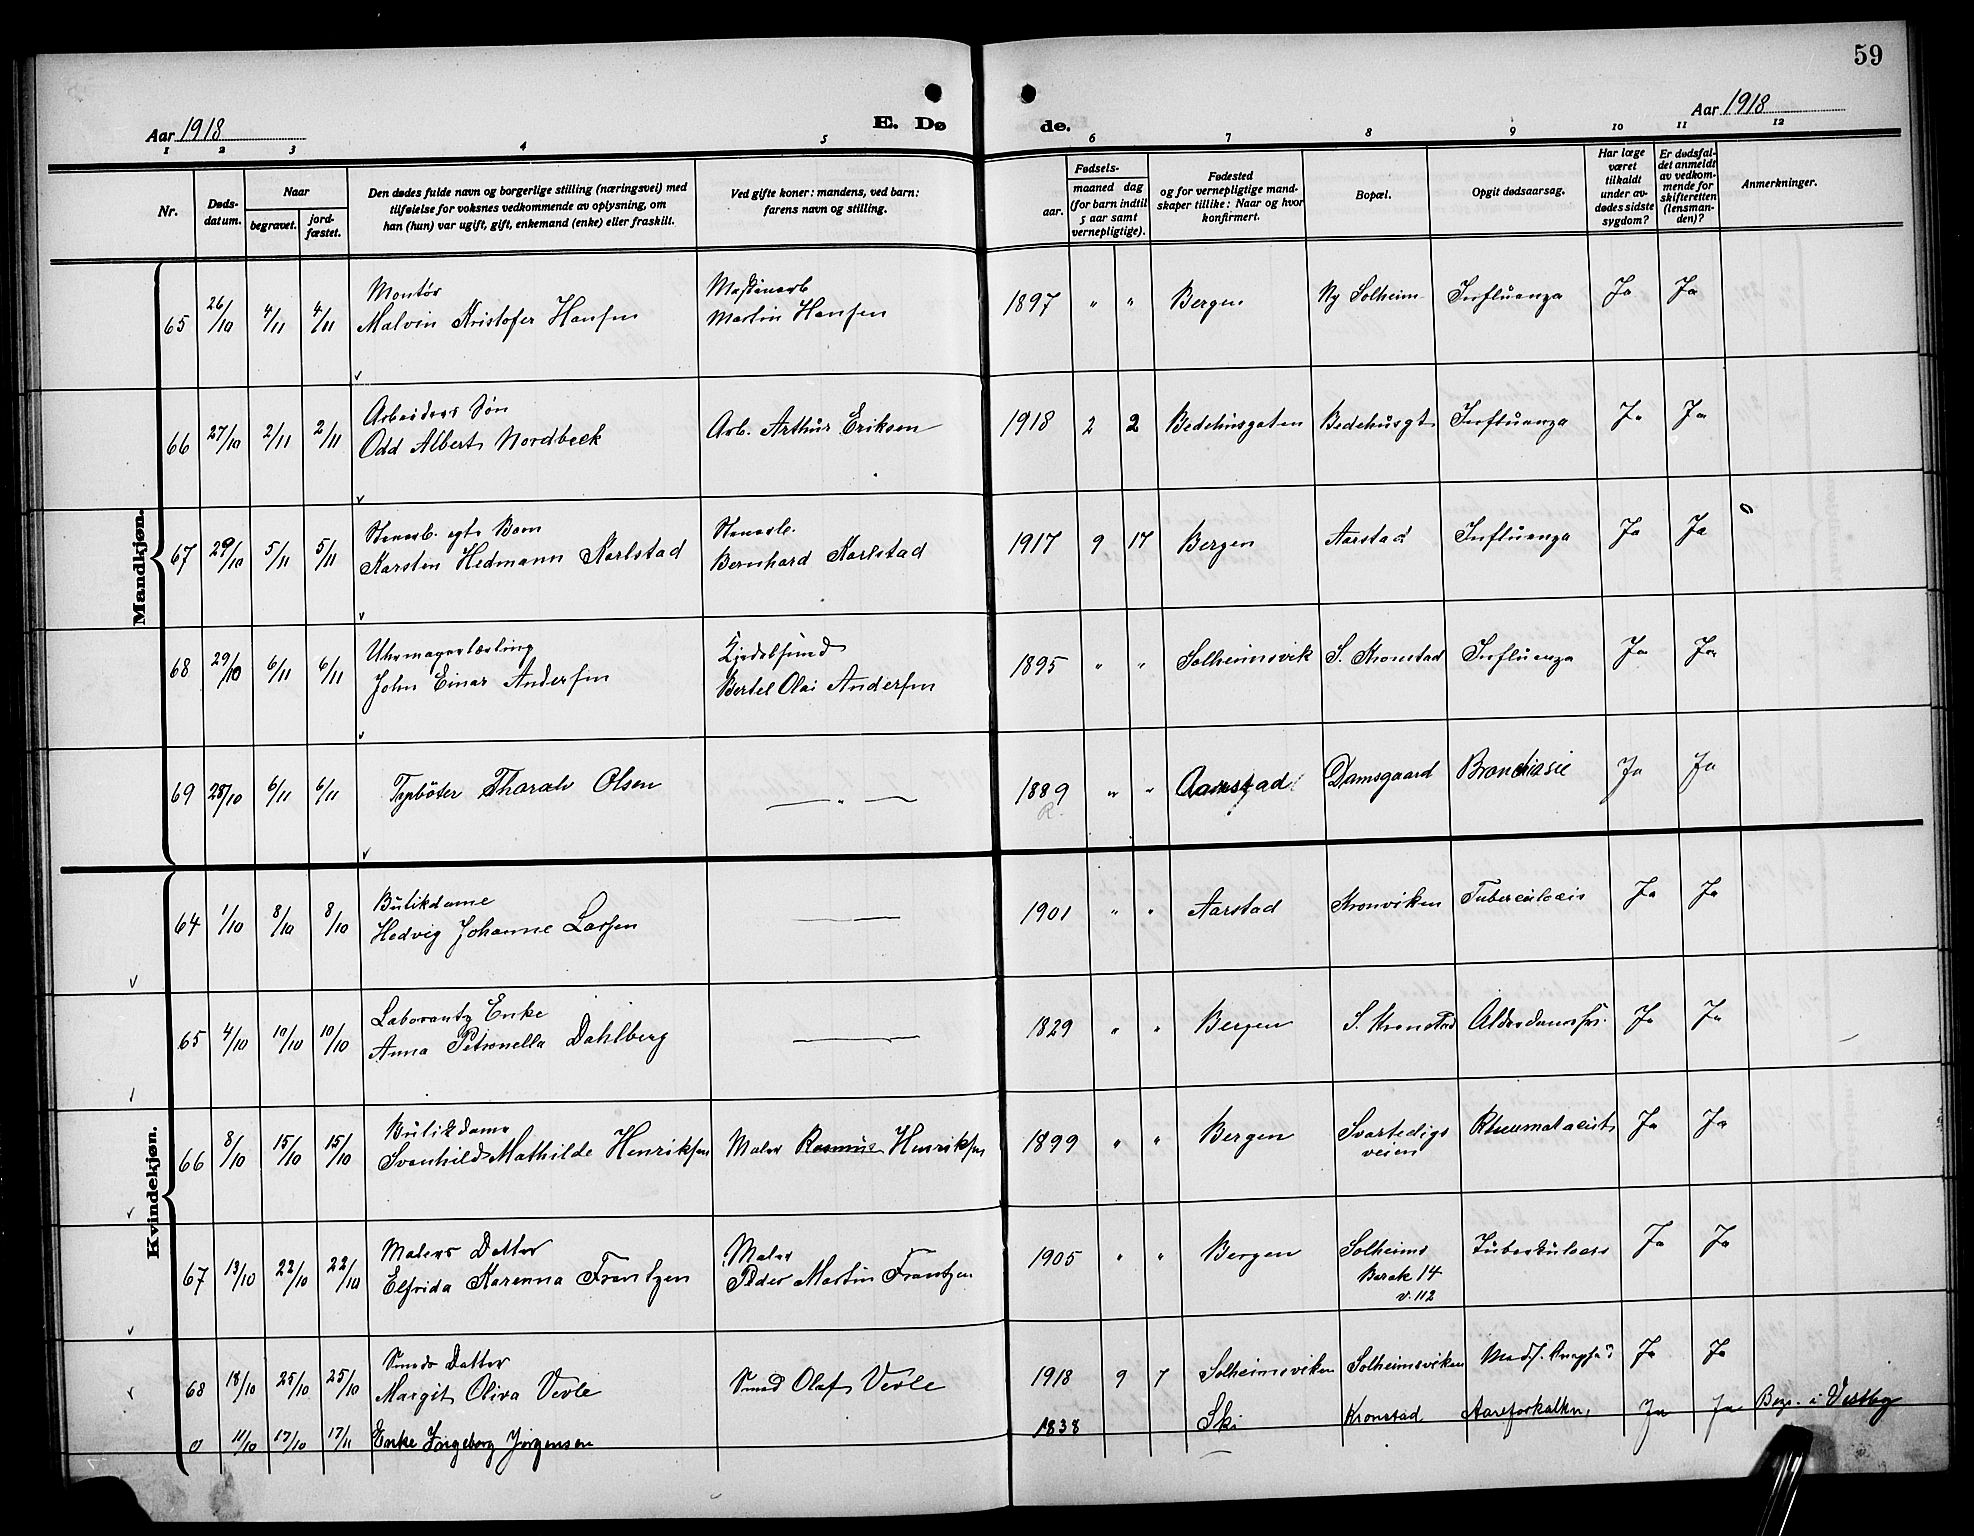 59
Aar 1918
E. Dø
de.
Aar 1918
1 2 3 4 5 6 7 8 9 10 11 12
Nr.
Døds-
datum.
Naar
begravet.
jord-
fæstet.
Den dødes fulde navn og borgerlige stilling (næringsvei) med
tilføielse for voksnes vedkommende av oplysning, om
han (hun) var ugift, gift, enkemand (enke) eller fraskilt.
Ved gifte koner: mandens, ved barn:
farens navn og stilling.
Fødsels-
aar.
maaned dag
(for barn indtil
5 aar samt
vernepligtige).
Fødested
og for vernepligtige mand-
skaper tillike: Naar og hvor
konfirmert.
Bopæl.
Opgit dødsaarsag.
Har læge
været
tilkaldt
under av-
dødes sidste
sygdom?
Er dødsfal-
det anmeldt
av vedkom-
mende for
skifteretten
(lensman-
den)?
Anmerkninger.
Mandkjøn.
Montør
65 26/10 4/11 4/11 Malvin Kristofer Hansen Martin Hansen 1897 " " Bergen Ny Solheim Influenza Ja Ja
Arbeiders Søn
66 27/10 2/11 2/11 Odd Albert Nordbeck Arb. Arthur Eriksen 1918 2 2 Bedehusgaten Bedehusgt Influenza Ja Ja
Stenarb. egte Barn Stenarb.
67 29/10 5/11 5/11 Karsten Hedmann Karlstad Bernhard Karlstad 1917 9 17 Bergen Aarstad Influenza Ja Ja 0
Uhrmagerlærling
68 29/10 6/11 6/11 John Einar Andersen Bertel Olai Andersen 1895 " " Solheimsvik S. Kronstad Influenza Ja Ja
69 28/10 6/11 6/11 Olsen — " — 1889 " " Aarstad Damsgaard Ja Ja
R.
Kvindekjøn.
Butikdame
64 1/10 8/10 8/10 Hedvig Johanne Larsen — 1901 " " Aarstad Kronviken Tuberculosis Ja Ja
Laborants Enke
65 4/10 10/10 10/10 Anna Petronella Dahlberg — 1829 " " Bergen S. Kronstad Ja Ja
Butikdame
66 8/10 15/10 15/10 Svanhild Mathilde Henriksen Maler Rasmus Henriksen 1899 " " Bergen Svartedigs Ja Ja
veien
Malers Datter Maler
67 13/10 22/10 22/10 Elfrida Karenna Frantzen Peder Martin Frantzen 1905 " " Bergen Solheims Ja Ja
Barak 14
v. 112
Smeds Datter
68 18/10 25/10 25/10 Margit Oliva Vevle Smed Olaf Vevle 1918 9 7 Solheimsviken Solheimsviken Ja Ja
0 11/10 17/10 17/11 Enke Ingeborg Jørgensen 1838 Ski Kronstad Aareforkalkn. Ja Ja Begr. i Vestby